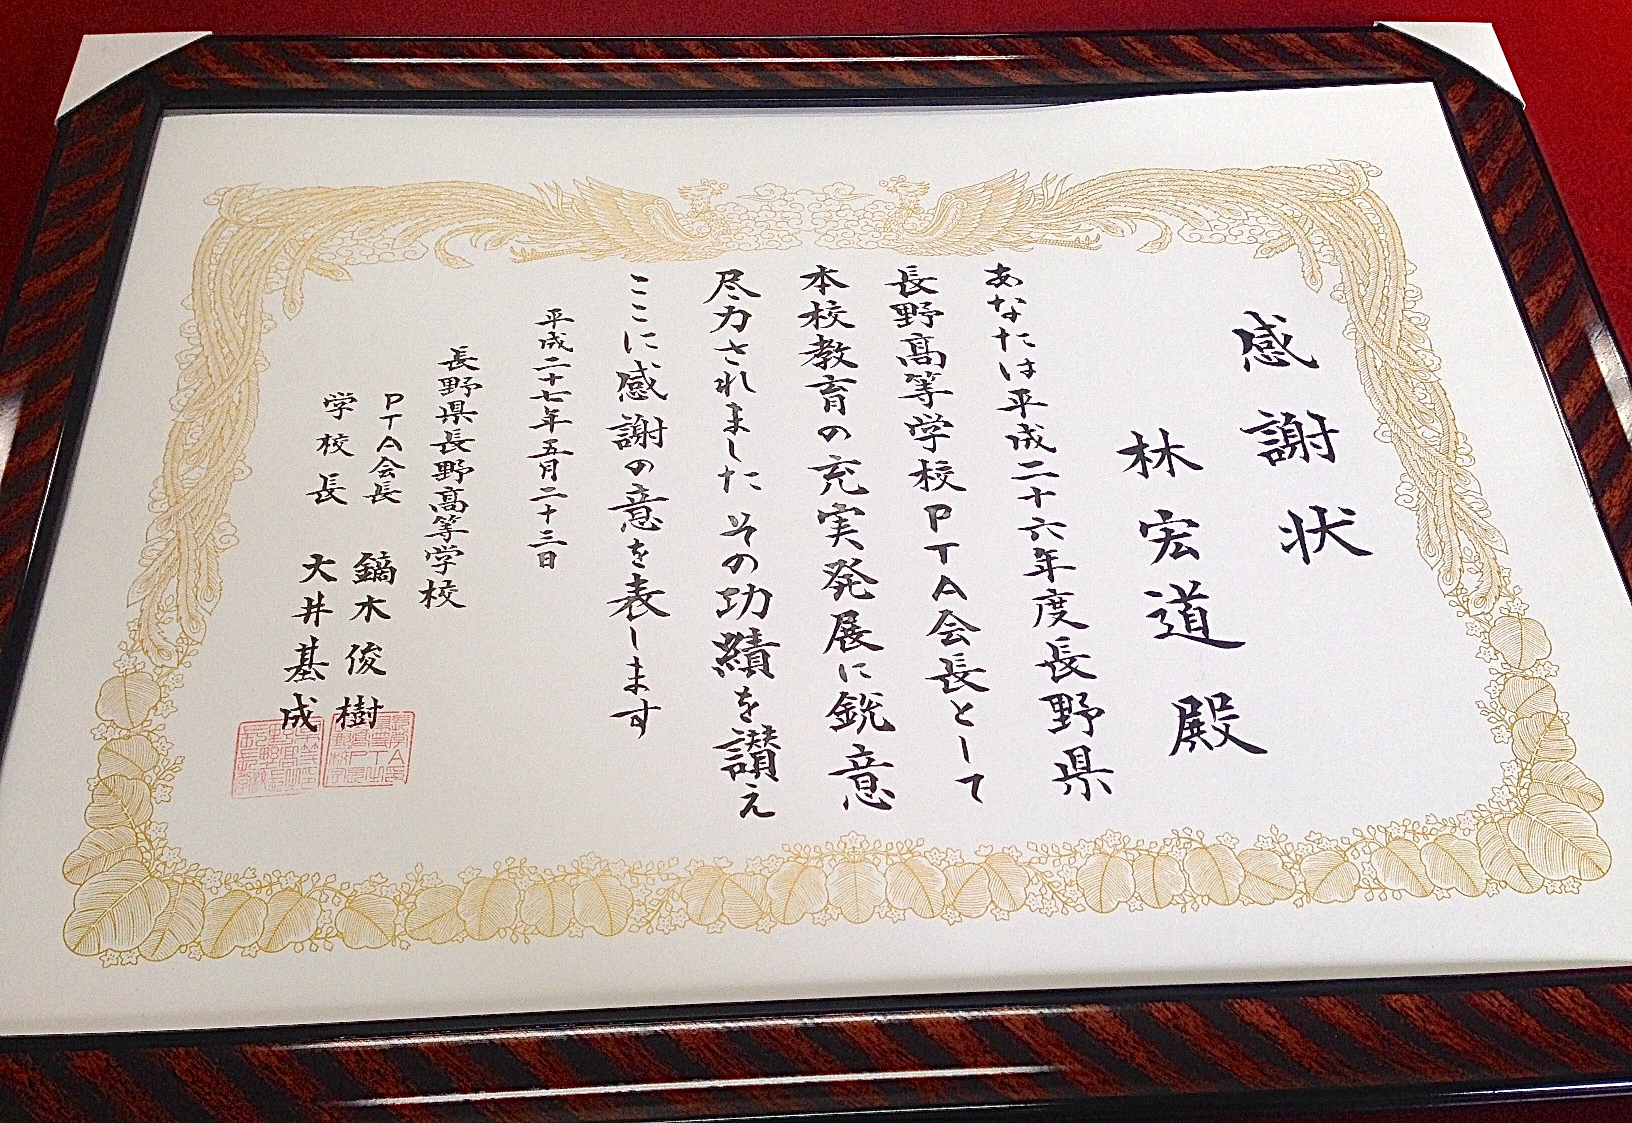 感謝状
林宏道殿
あなたは平成二十六年度長野県
長野高等学校PTA会長として
本校教育の充実発展に鋭意
尽力されました その功績を讃え
ここに感謝の意を表します
平成二十七年五月二十三日
長野県長野高等学校
PTA会長 鏑木俊樹
学校長 大井基成